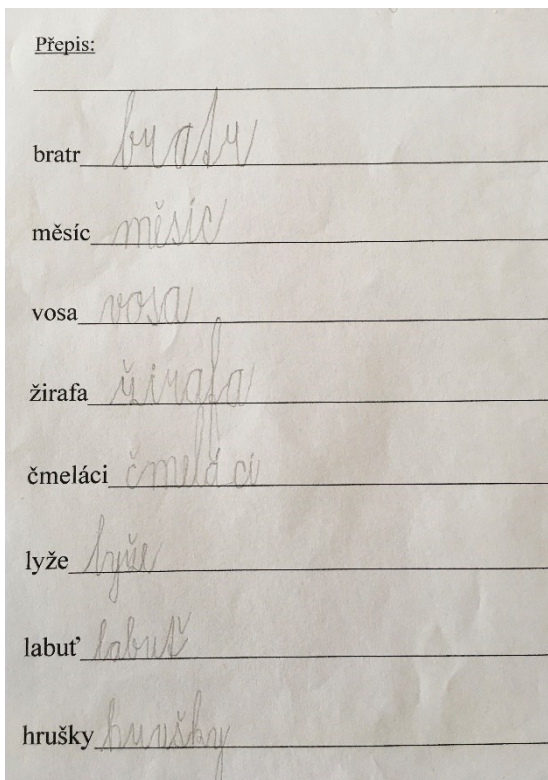 Přepis:
bratr bratr
měsíc měsíc
vosa vosa
žirafa žirafa
čmeláci čmeláci
lyže lyže
labuť labuť
hrušky hrušky